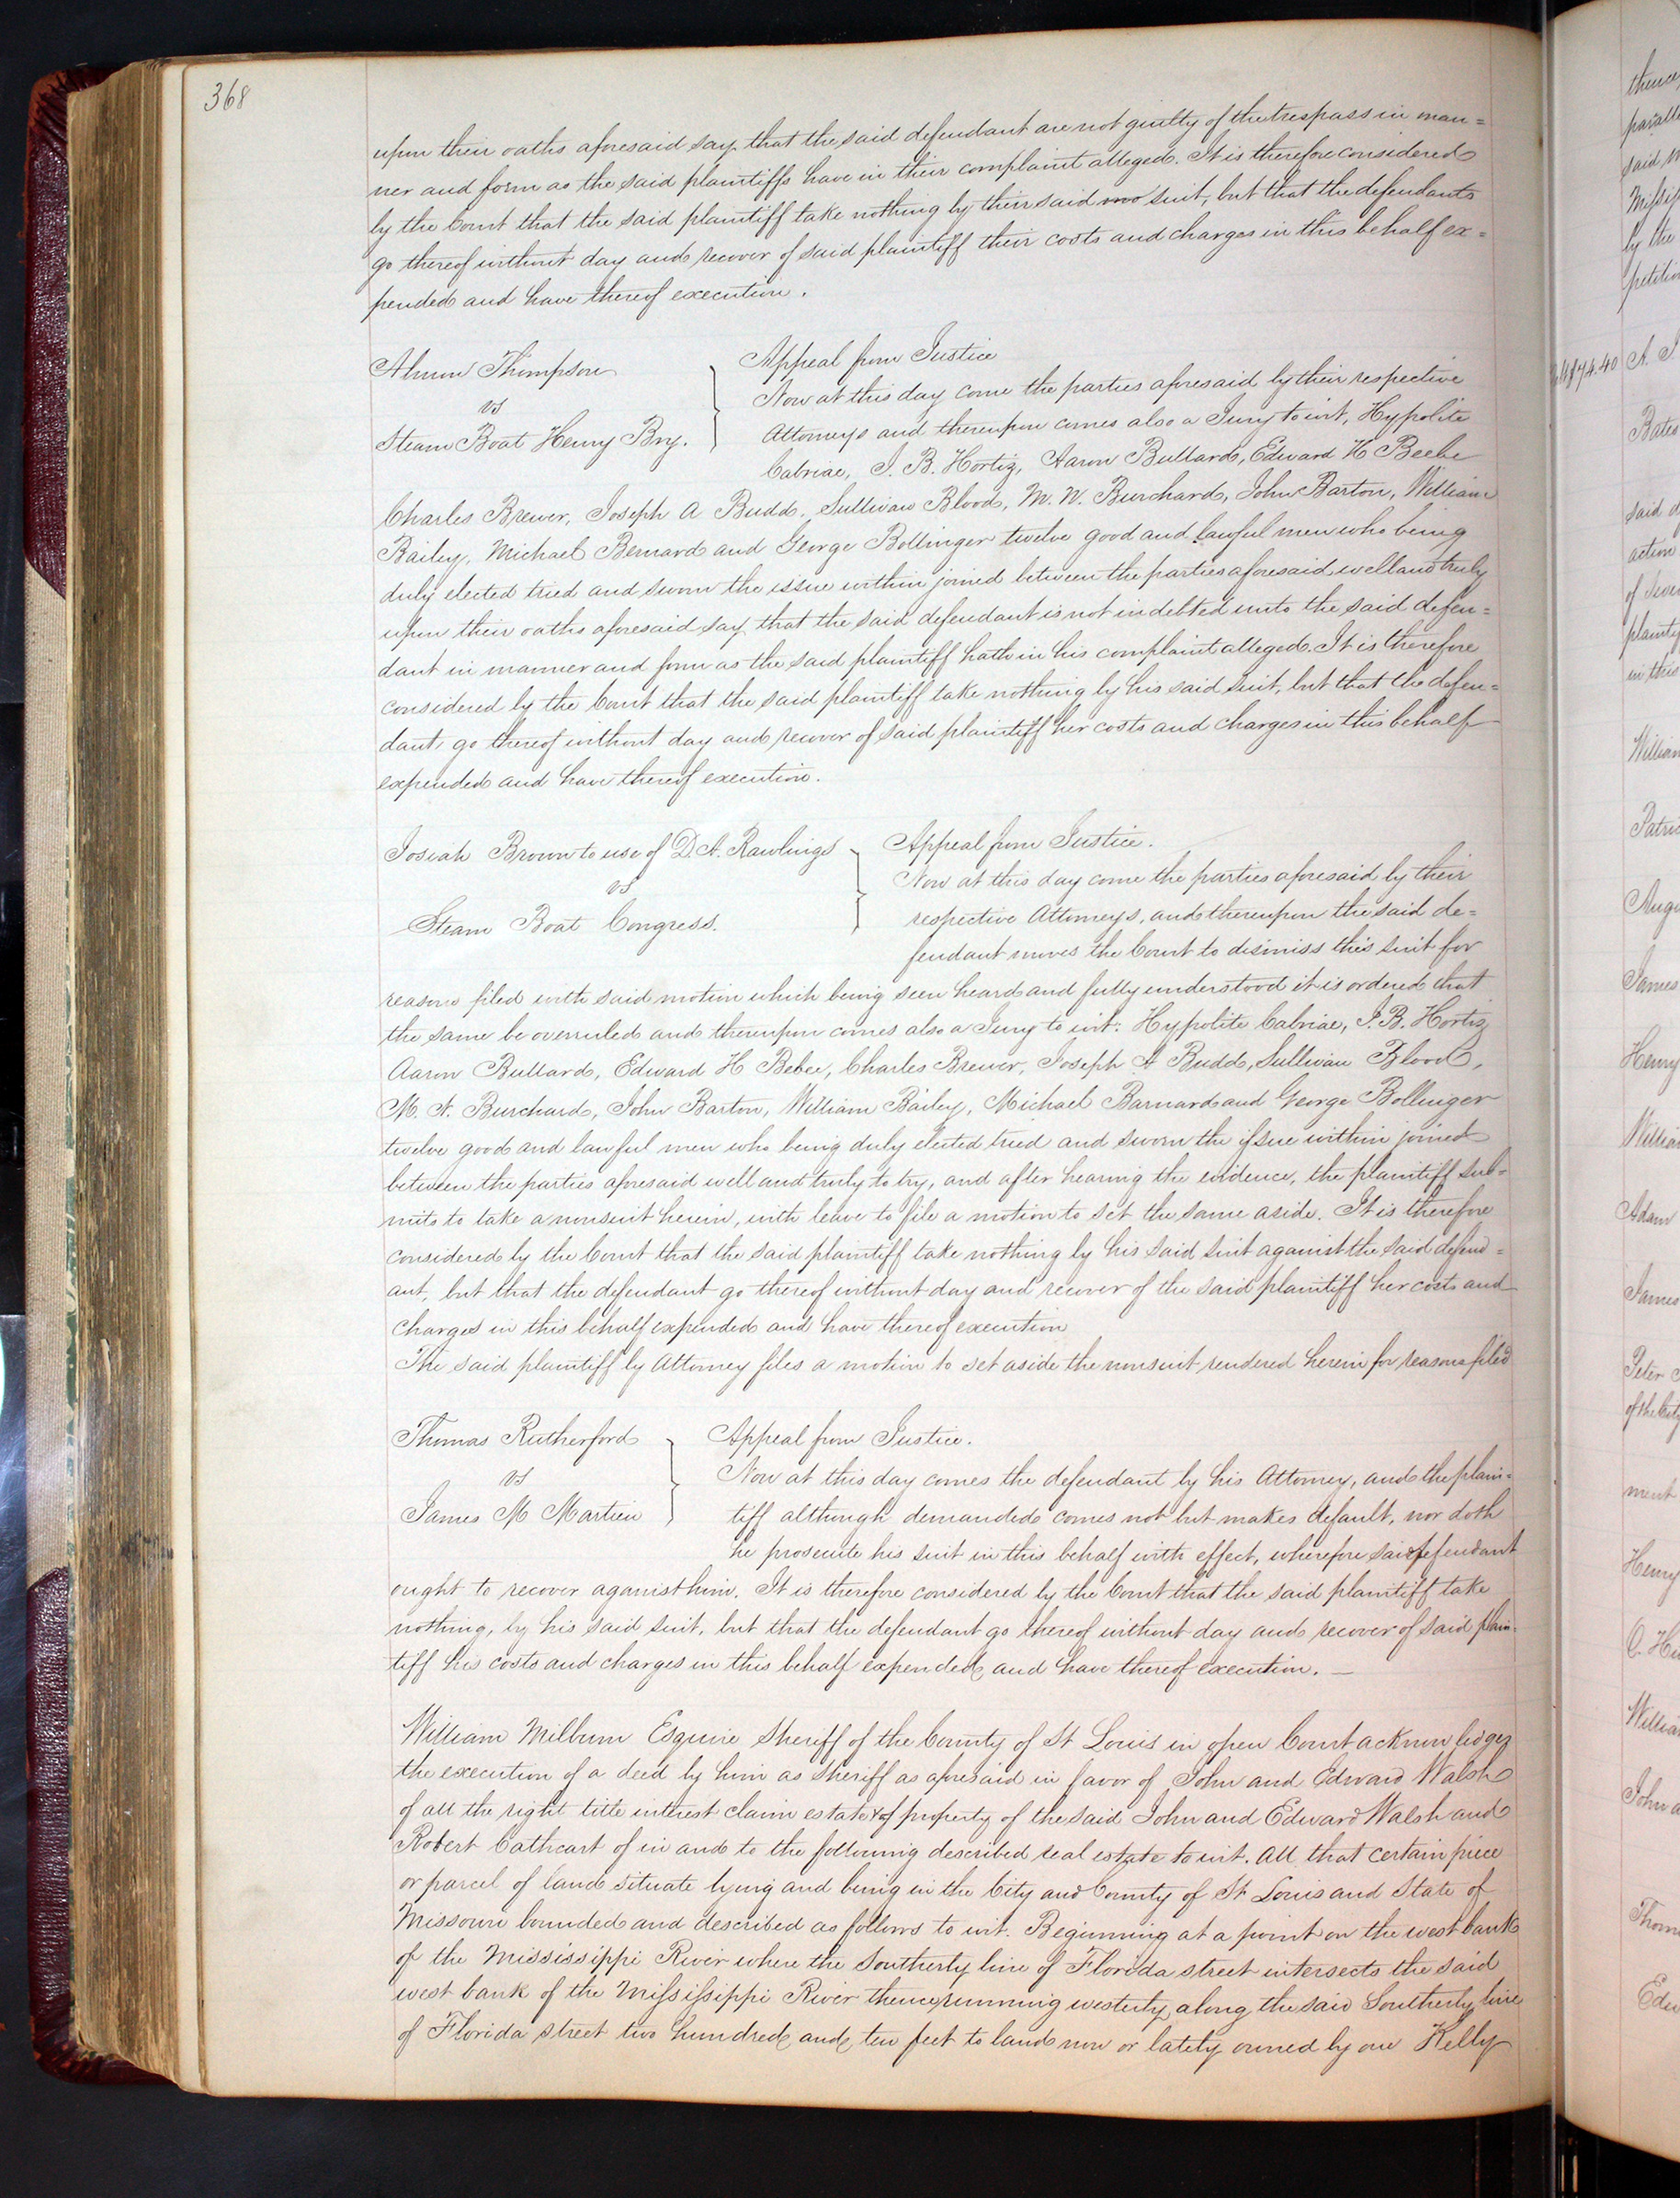 368
upon their oaths aforesaid say that the said defendant are not guilty of the trespass in man=
ner and form as the said plaintiffs have in their complaint alleged. It is therefore considered
by the Court that the said plaintiff take nothing by their said suit, but that the defendants
go thereof without day and recover of said plaintiff their costs and charges in this behalf ex=
pended and have thereof execution.
Almon Thompson
vs
Steam Boat Henry Bry.
Appeal from Justice
Now at this day come the parties aforesaid by their respective
Attorneys and thereupon comes also a Jury to wit, Hypolite
Cabriae, J. B. Hortiz, Aaron Bullard, Edward H Beebe
Charles Brewer, Joseph A Budd, Sullivan Blood, M. N. Burchard, John Barton, William
Bailey, Michael Bernard and George Bollinger twelve good and lawful men who being
duly elected tried and sworn the issue within joined between the parties aforesaid well and truly
upon their oaths aforesaid say that the said defendant is not indebted unto the said defen=
dant in manner and form as the said plaintiff hath in his complaint alleged. It is therefore
considered by the Court that the said plaintiff take nothing by his said suit, but that the defen=
dant, go thereof without day and recover of said plaintiff her costs and charges in this behalf
expended and have thereof execution.
Josiah Brown to use of D. A. Rawlings
vs
Steam Boat Congress.
Appeal from Justice.
Now at this day come the parties aforesaid by their
respective Attorneys, and thereupon the said de=
fendant moves the Court to dismiss this suit for
reasons filed with said motion which being seen heard and fully understood it is ordered that
the same be overruled and thereupon comes also a Jury to wit: Hypolite Cabriae, J. B. Hortiz
Aaron Bullard, Edward H Bebee, Charles Brewer, Joseph A Budd, Sullivan Blood,
M. A. Burchard, John Barton, William Bailey, Michael Barnard and George Bollinger
twelve good and lawful men who being duly elected tried and sworn the issue within joined
between the parties aforesaid well and truly to try, and after hearing the evidence, the plaintiff sub=
mits to take a nonsuit herein, with leave to file a motion to set the same aside. It is therefore
considered by the Court that the said plaintiff take nothing by his said suit against the said defend=
ant, but that the defendant go thereof without day and recover of the said plaintiff her costs and
charges in this behalf expended and have thereof execution
The said plaintiff by Attorney files a motion to set aside the nonsuit rendered herein for reasons filed
Thomas Rutherford
vs
James M Martien
Appeal from Justice.
Now at this day comes the defendant by his Attorney, and the plain=
tiff although demanded comes not but makes default, nor doth
he prosecute his suit in this behalf with effect, wherefore said defendant
ought to recover against him. It is therefore considered by the Court that the said plaintiff take
nothing, by his said suit, but that the defendant go thereof without day and recover of said plain=
tiff his costs and charges in this behalf expended and have thereof execution. —
William Milburn Esquire Sheriff of the County of St Louis in open Court acknowledges
the execution of a deed by him as Sheriff as aforesaid in favor of John and Edward Walsh
of all the right title interest claim estate & of property of the said John and Edward Walsh and
Robert Cathcart of in and to the following described real estate to wit. All that certain piece
or parcel of land situate lying and being in the City and County of St Louis and State of
Missouri bounded and described as follows to wit. Beginning at a point on the west bank
of the Mississippi River where the Southerly line of Florida street intersects the said
west bank of the Mississippi River thence running westerly along the said Southerly line
of Florida street two hundred and ten feet to land now or lately owned by one Kelly